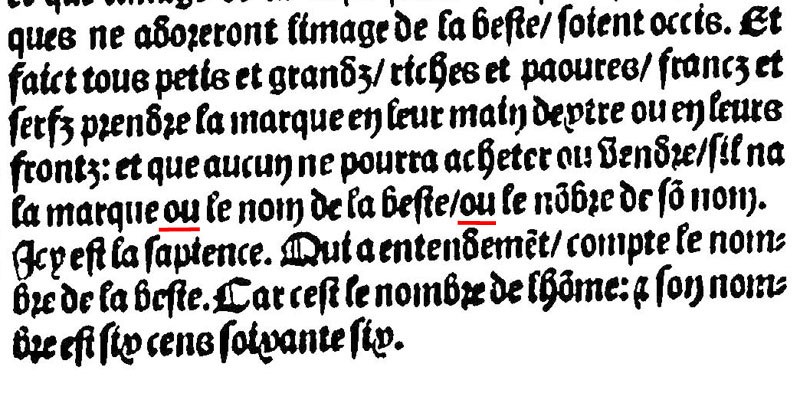 ques ne adoreront limage de la beste/ soient occis. Et
faict tous petis et grandz/ riches et paoures/ francz et
serfz prendre la marque en leur main dextre ou en leurs
frontz: et que aucun ne pourra acheter ou vendre/ sil na
la marque ou le nom de la beste/ou le nõbre de sõ nom.
Icy est la sapience. Qui a entendemẽt/ compte le nom-
bre de la beste. Car cest le nombre de lhõme: & son nom-
bre est six cens soixante six.